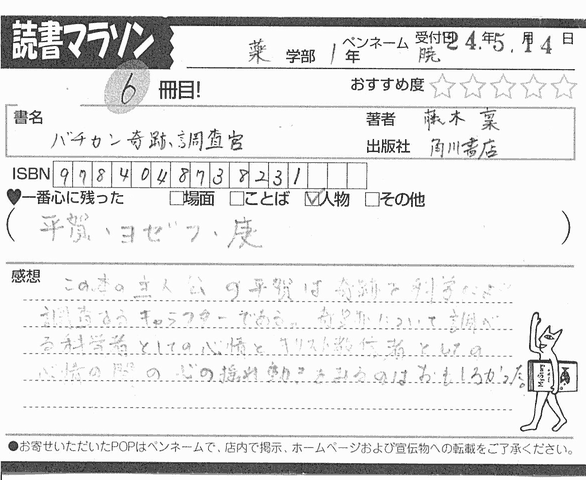 読書マラソン
薬 学部 1年 ペンネーム 暁 受付日 24年5月14日
6 冊目! おすすめ度 ☆☆☆☆☆
書名 バチカン奇跡調査官
著者 藤木 稟
出版社 角川書店
ISBN 9784048738231
♥一番心に残った □場面 □ことば ☑人物 □その他
(平賀・ヨゼフ・庚)
感想 この本の主人公の平賀は奇跡を科学的に
調査するキャラクターである。奇跡について調べ
る科学者としての心情とキリスト教信者としての
心情の間の心の揺れ動きをみるのはおもしろかった。
●お寄せいただいたPOPはペンネームで、店内で掲示、ホームページおよび宣伝物への転載をご了承ください。